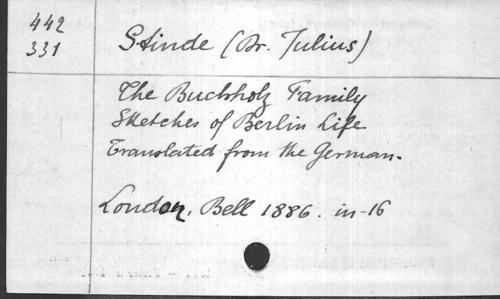 442
331
Stinde (Dr. Julius)
The Buchholz Family
Sketches of Berlin Life
Translated from the German.
London, Bell 1886. in-16